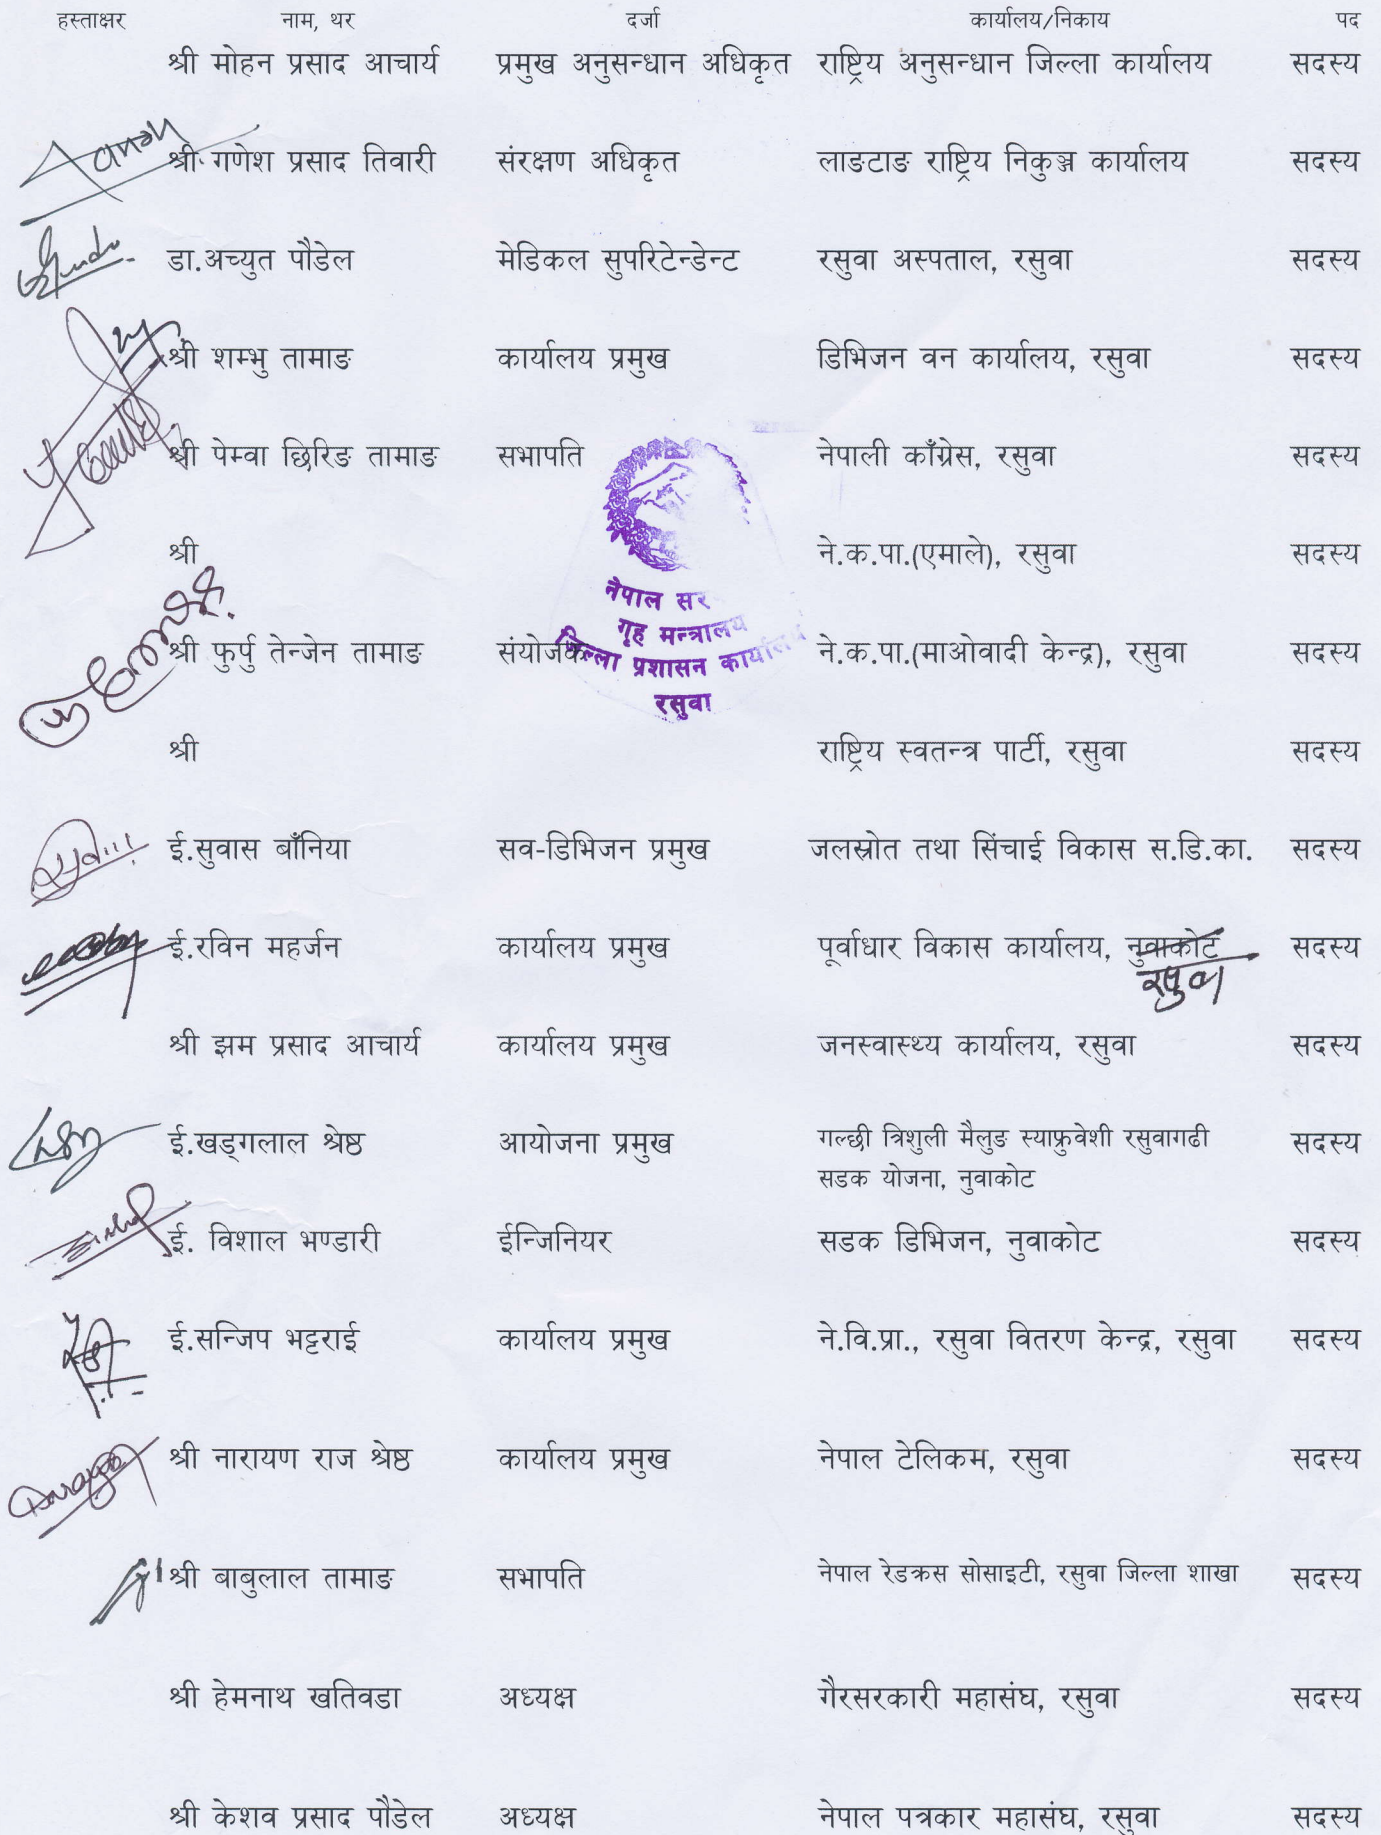 हस्ताक्षर नाम, थर दर्जा कार्यालय/निकाय पद
श्री मोहन प्रसाद आचार्य प्रमुख अनुसन्धान अधिकृत राष्ट्रिय अनुसन्धान जिल्ला कार्यालय सदस्य
श्री गणेश प्रसाद तिवारी संरक्षण अधिकृत लाङटाङ राष्ट्रिय निकुञ्ज कार्यालय सदस्य
डा.अच्युत पौडेल मेडिकल सुपरिटेन्डेन्ट रसुवा अस्पताल, रसुवा सदस्य
श्री शम्भु तामाङ कार्यालय प्रमुख डिभिजन वन कार्यालय, रसुवा सदस्य
श्री पेम्वा छिरिङ तामाङ सभापति नेपाली काँग्रेस, रसुवा सदस्य
श्री ने.क.पा.(एमाले), रसुवा सदस्य
नेपाल सर
गृह मन्त्रालय
श्री फुर्पु तेन्जेन तामाङ संयोजक ने.क.पा.(माओवादी केन्द्र), रसुवा सदस्य
जिल्ला प्रशासन कार्यालय
रसुवा
श्री राष्ट्रिय स्वतन्त्र पार्टी, रसुवा सदस्य
ई.सुवास बाँनिया सव-डिभिजन प्रमुख जलस्रोत तथा सिंचाई विकास स.डि.का. सदस्य
ई.रविन महर्जन कार्यालय प्रमुख पूर्वाधार विकास कार्यालय, नुवाकोट सदस्य
रसुवा
श्री झम प्रसाद आचार्य कार्यालय प्रमुख जनस्वास्थ्य कार्यालय, रसुवा सदस्य
ई.खड्गलाल श्रेष्ठ आयोजना प्रमुख गल्छी त्रिशुली मैलुङ स्याफ्रुवेशी रसुवागढी सदस्य
सडक योजना, नुवाकोट
ई. विशाल भण्डारी ईन्जिनियर सडक डिभिजन, नुवाकोट सदस्य
ई.सन्जिप भट्टराई कार्यालय प्रमुख ने.वि.प्रा., रसुवा वितरण केन्द्र, रसुवा सदस्य
श्री नारायण राज श्रेष्ठ कार्यालय प्रमुख नेपाल टेलिकम, रसुवा सदस्य
श्री बाबुलाल तामाङ सभापति नेपाल रेडक्रस सोसाइटी, रसुवा जिल्ला शाखा सदस्य
श्री हेमनाथ खतिवडा अध्यक्ष गैरसरकारी महासंघ, रसुवा सदस्य
श्री केशव प्रसाद पौडेल अध्यक्ष नेपाल पत्रकार महासंघ, रसुवा सदस्य